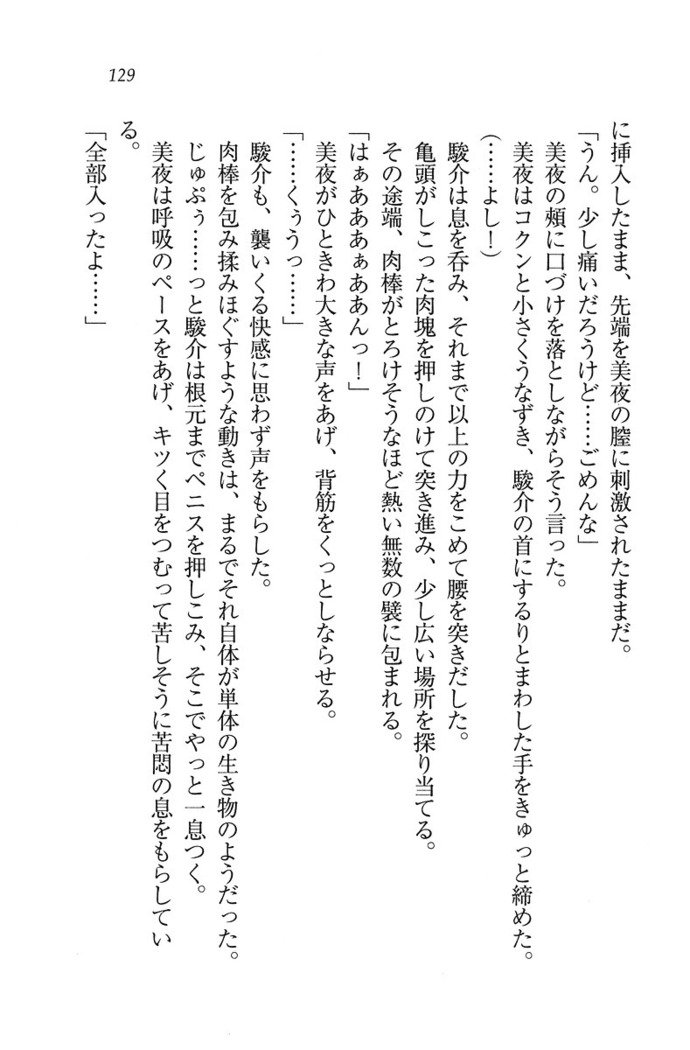 129
に挿入したまま、先端を美夜の膣に刺激されたままだ。
「うん。少し痛いだろうけど……ごめんな」
美夜の頰に口づけを落としながらそう言った。
美夜はコクンと小さくうなずき、駿介の首にするりとまわした手をきゅっと締めた。
(……よし！)
駿介は息を呑み、それまで以上の力をこめて腰を突きだした。
亀頭がしこった肉塊を押しのけて突き進み、少し広い場所を探り当てる。
その途端、肉棒がとろけそうなほど熱い無数の襞に包まれる。
「はぁあああぁああんっ！」
美夜がひときわ大きな声をあげ、背筋をくっとしならせる。
「……くぅうっ……」
駿介も、襲いくる快感に思わず声をもらした。
肉棒を包み揉みほぐすような動きは、まるでそれ自体が単体の生き物のようだった。
じゅぷぅ……っと駿介は根元までペニスを押しこみ、そこでやっと一息つく。
美夜は呼吸のペースをあげ、キツく目をつむって苦しそうに苦悶の息をもらしてい
る。
「全部入ったよ……」